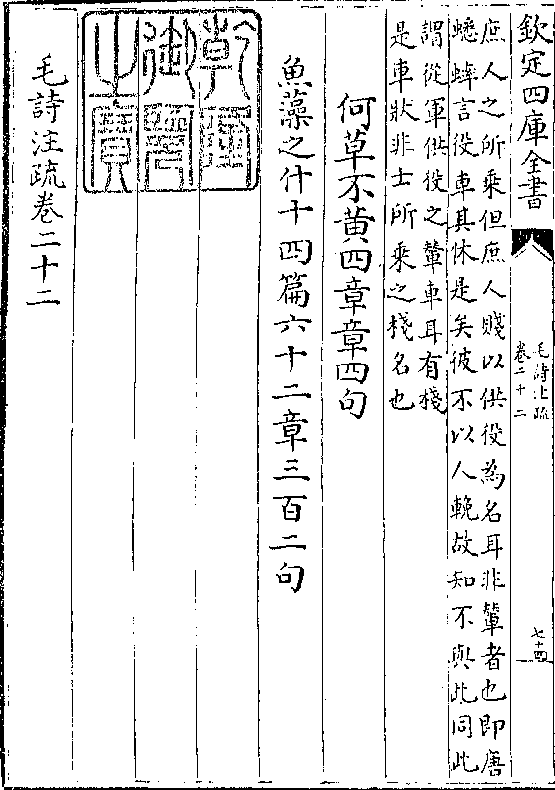 欽定四庫全書
毛詩注疏
卷二十二
七十四
庶人之所乘但庶人賤以供役為名耳非輦者也即唐
蟋蟀言役車其休是矣彼不以人輓故知不與此同此
謂從軍供役之輦車耳有棧
是車狀非士所乘之棧名也
何草不黄四章章四句
魚藻之什十四篇六十二章三百二句
乾隆
御覽
之寶
毛詩注疏卷二十二